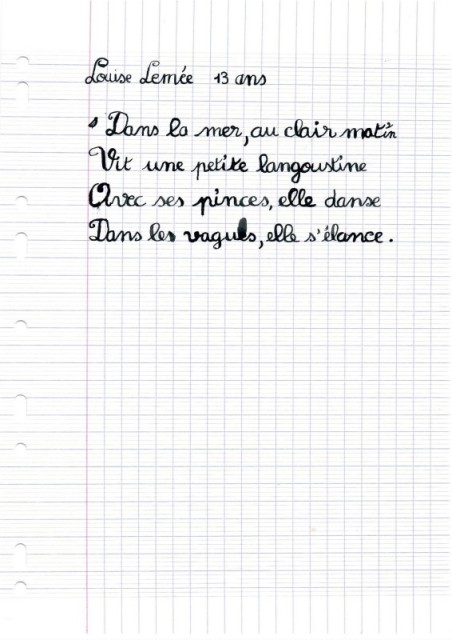 Louise Lemée 13 ans
Dans la mer, au clair matin
Vit une petite langoustine
Avec ses pinces, elle danse
Dans les vagues, elle s'élance.